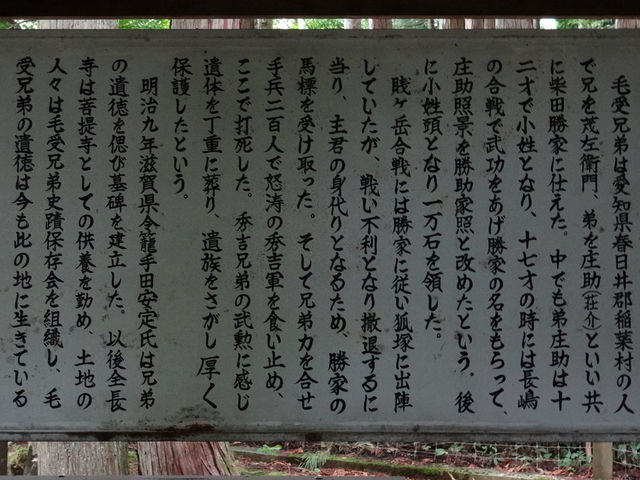 毛受兄弟は愛知県春日井郡稲葉村の人
で兄を茂左衛門、弟を庄助(荘介)といい共
に柴田勝家に仕えた。中でも弟庄助は十
二才で小姓となり、十七才の時には長嶋
の合戦で武功をあげ勝家の名をもらって、
庄助照景を勝助家照と改めたという。後
に小姓頭となり一万石を領した。
賤ヶ岳合戦には勝家に従い狐塚に出陣
していたが、戦い不利となり撤退するに
当り、主君の身代りとなるため、勝家の
馬標を受け取った。そして兄弟力を合せ
手兵二百人で怒涛の秀吉軍を食い止め、
ここで打死した。秀吉兄弟の武勲に感じ
遺体を丁重に葬り、遺族をさがし厚く
保護したという。
明治九年滋賀県令籠手田安定氏は兄弟
の遺徳を偲び墓碑を建立した。以後全長
寺は菩提寺としての供養を勤め、土地の
人々は毛受兄弟史蹟保存会を組織し、毛
受兄弟の遺徳は今も此の地に生きている